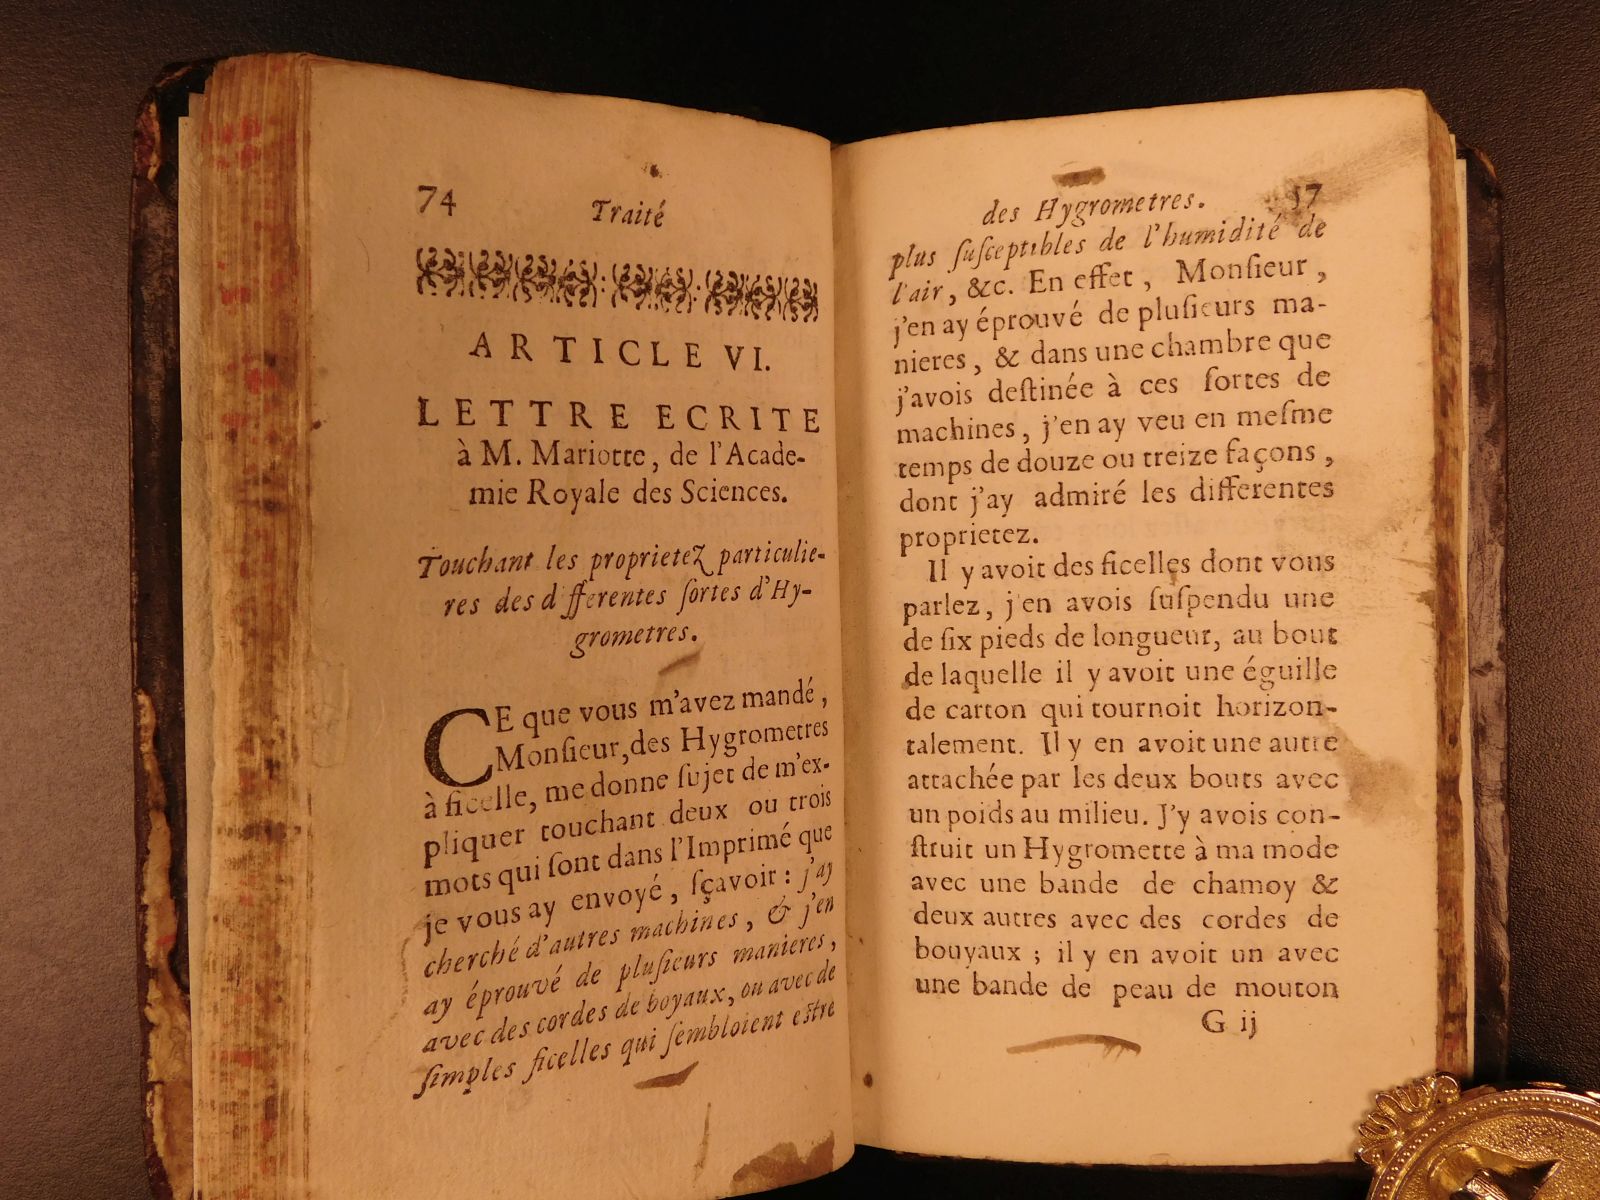 74
Traité
ARTICLE VI.
LETTRE ECRITE
à M. Mariotte, de l'Acade-
mie Royale des Sciences.
Touchant les proprietez particulie-
res des differentes ſortes d'Hy-
grometres.
CE que vous m'avez mandé,
Monſieur, des Hygrometres
à ficelle, me donne ſujet de m'ex-
pliquer touchant deux ou trois
mots qui ſont dans l'Imprimé que
je vous ay envoyé, ſçavoir : j'ay
cherché d'autres machines, & j'en
ay éprouvé de pluſieurs manieres,
avec des cordes de boyaux, ou avec de
ſimples ficelles qui ſembloient eſtre
des Hygrometres. 57
plus ſuſceptibles de l'humidité de
l'air, &c. En effet, Monſieur,
j'en ay éprouvé de pluſieurs ma-
nieres, & dans une chambre que
j'avois deſtinée à ces ſortes de
machines, j'en ay veu en meſme
temps de douze ou treize façons,
dont j'ay admiré les differentes
proprietez.
Il y avoit des ficelles dont vous
parlez, j'en avois ſuſpendu une
de ſix pieds de longueur, au bout
de laquelle il y avoit une éguille
de carton qui tournoit horizon-
talement. Il y en avoit une autre
attachée par les deux bouts avec
un poids au milieu. J'y avois con-
ſtruit un Hygrometre à ma mode
avec une bande de chamoy &
deux autres avec des cordes de
bouyaux ; il y en avoit un avec
une bande de peau de mouton
G ij